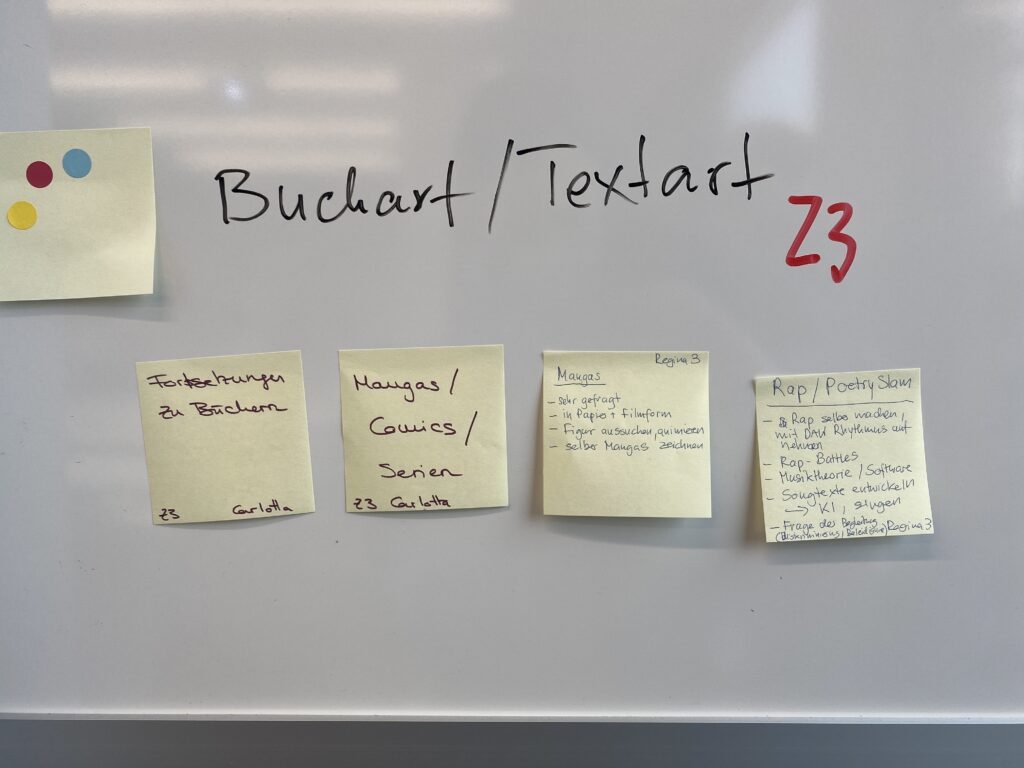 Buchart / Textart
Z3
Fortsetzungen
zu Büchern
Z3 Carlotta
Mangas /
Comics /
Serien
Z3 Carlotta
Regina 3
Mangas
- sehr gefragt
- in Papier + Filmform
- Figur aussuchen, animieren
- selber Mangas zeichnen
Rap / Poetry Slam
- Rap selbe machen,
mit DAW Rhythmus auf
nehmen
- Rap-Battles
- Musiktheorie / Software
- Songtexte entwickeln
→ KI, singen
- Frage der Begleitung
Regina 3